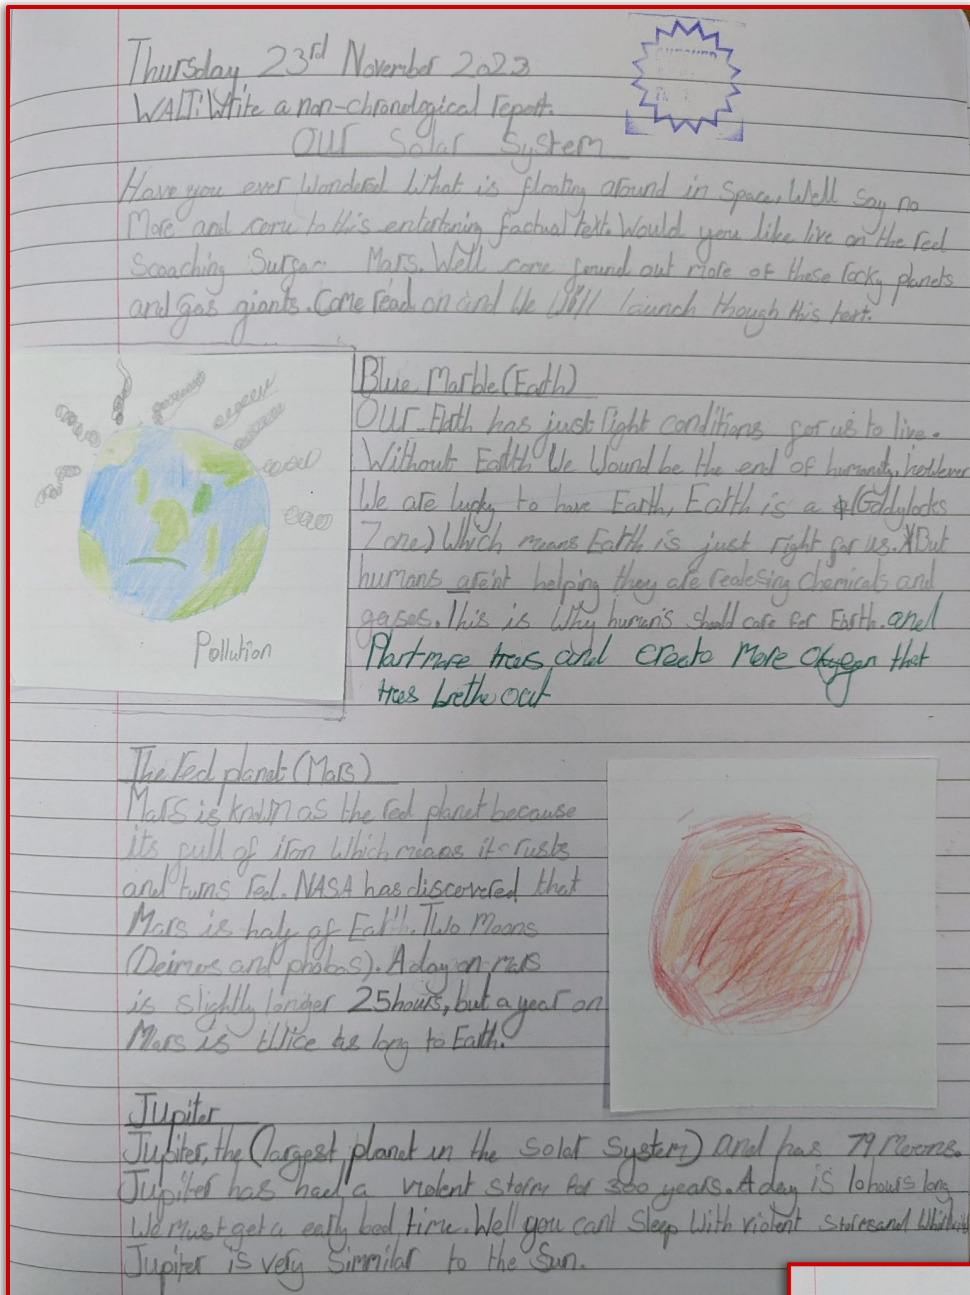 Thursday 23rd November 2023
WALT: Write a non-chronological report.
Our Solar System
Have you ever Wondered What is floating around in Space, Well say no
More and come to this entertaining factual text. Would you like live on the red
Scoaching Mars. Well come found out more of these rocky planets
and gas giants. Come read on and We Will launch though this text.
Blue Marble (Earth)
Our Earth has just right conditions for us to live.
Without Earth We Wound be the end of humanity, however
We are lucky to have Earth, Earth is a (Goldylocks
Zone) Which means Earth is just right for us. But
humans arent helping they are realesing chemicals and
gases. This is Why human's should care for Earth. and
Plant more trees and create more oxygen that
trees brethe out
Pollution
The red planet (Mars)
Mars is known as the red planet because
its full of iron Which means it rusts
and turns red. NASA has discovered that
Mars is half of Earth. Two Moons
(Deimos and phobos). A day on mars
is slightly longer 25hours, but a year on
Mars is twice as long to Earth.
Jupiter
Jupiter, the (largest planet in the Solar System) and has 79 Moons.
Jupiter has had a violent storm for 300 years. A day is 10hours long
We must get a early bed time. Well you cant Sleep With violent storms and
Jupiter is very Simmilar to the Sun.